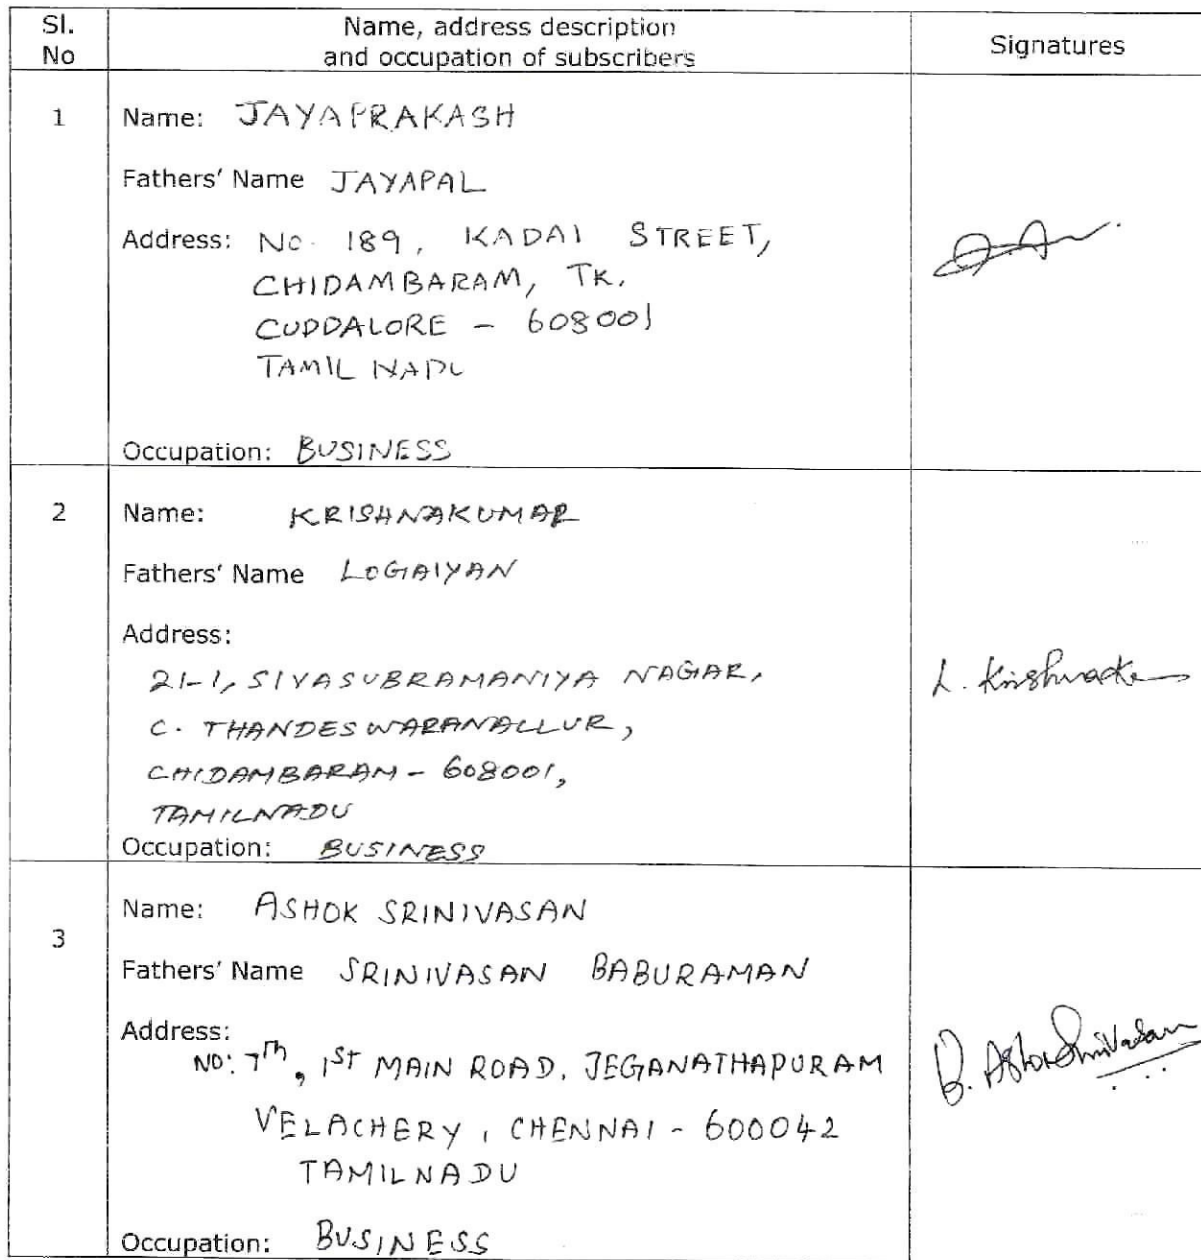 Sl. No
Name, address description and occupation of subscribers
Signatures
1
Name: JAYAPRAKASH
Fathers' Name JAYAPAL
Address: No. 189, KADAI STREET,
CHIDAMBARAM, TK.
CUDDALORE - 608001
TAMIL NADU
Occupation: BUSINESS
2
Name: KRISHNAKUMAR
Fathers' Name LOGAIYAN
Address:
21-1, SIVASUBRAMANIYA NAGAR,
C. THANDESWARANALLUR,
CHIDAMBARAM - 608001,
TAMILNADU
Occupation: BUSINESS
L. Krishnak
3
Name: ASHOK SRINIVASAN
Fathers' Name SRINIVASAN BABURAMAN
Address:
NO: 7th, 1st MAIN ROAD, JEGANATHAPURAM
VELACHERY, CHENNAI - 600042
TAMILNADU
Occupation: BUSINESS
B. Ashok Srinivasan